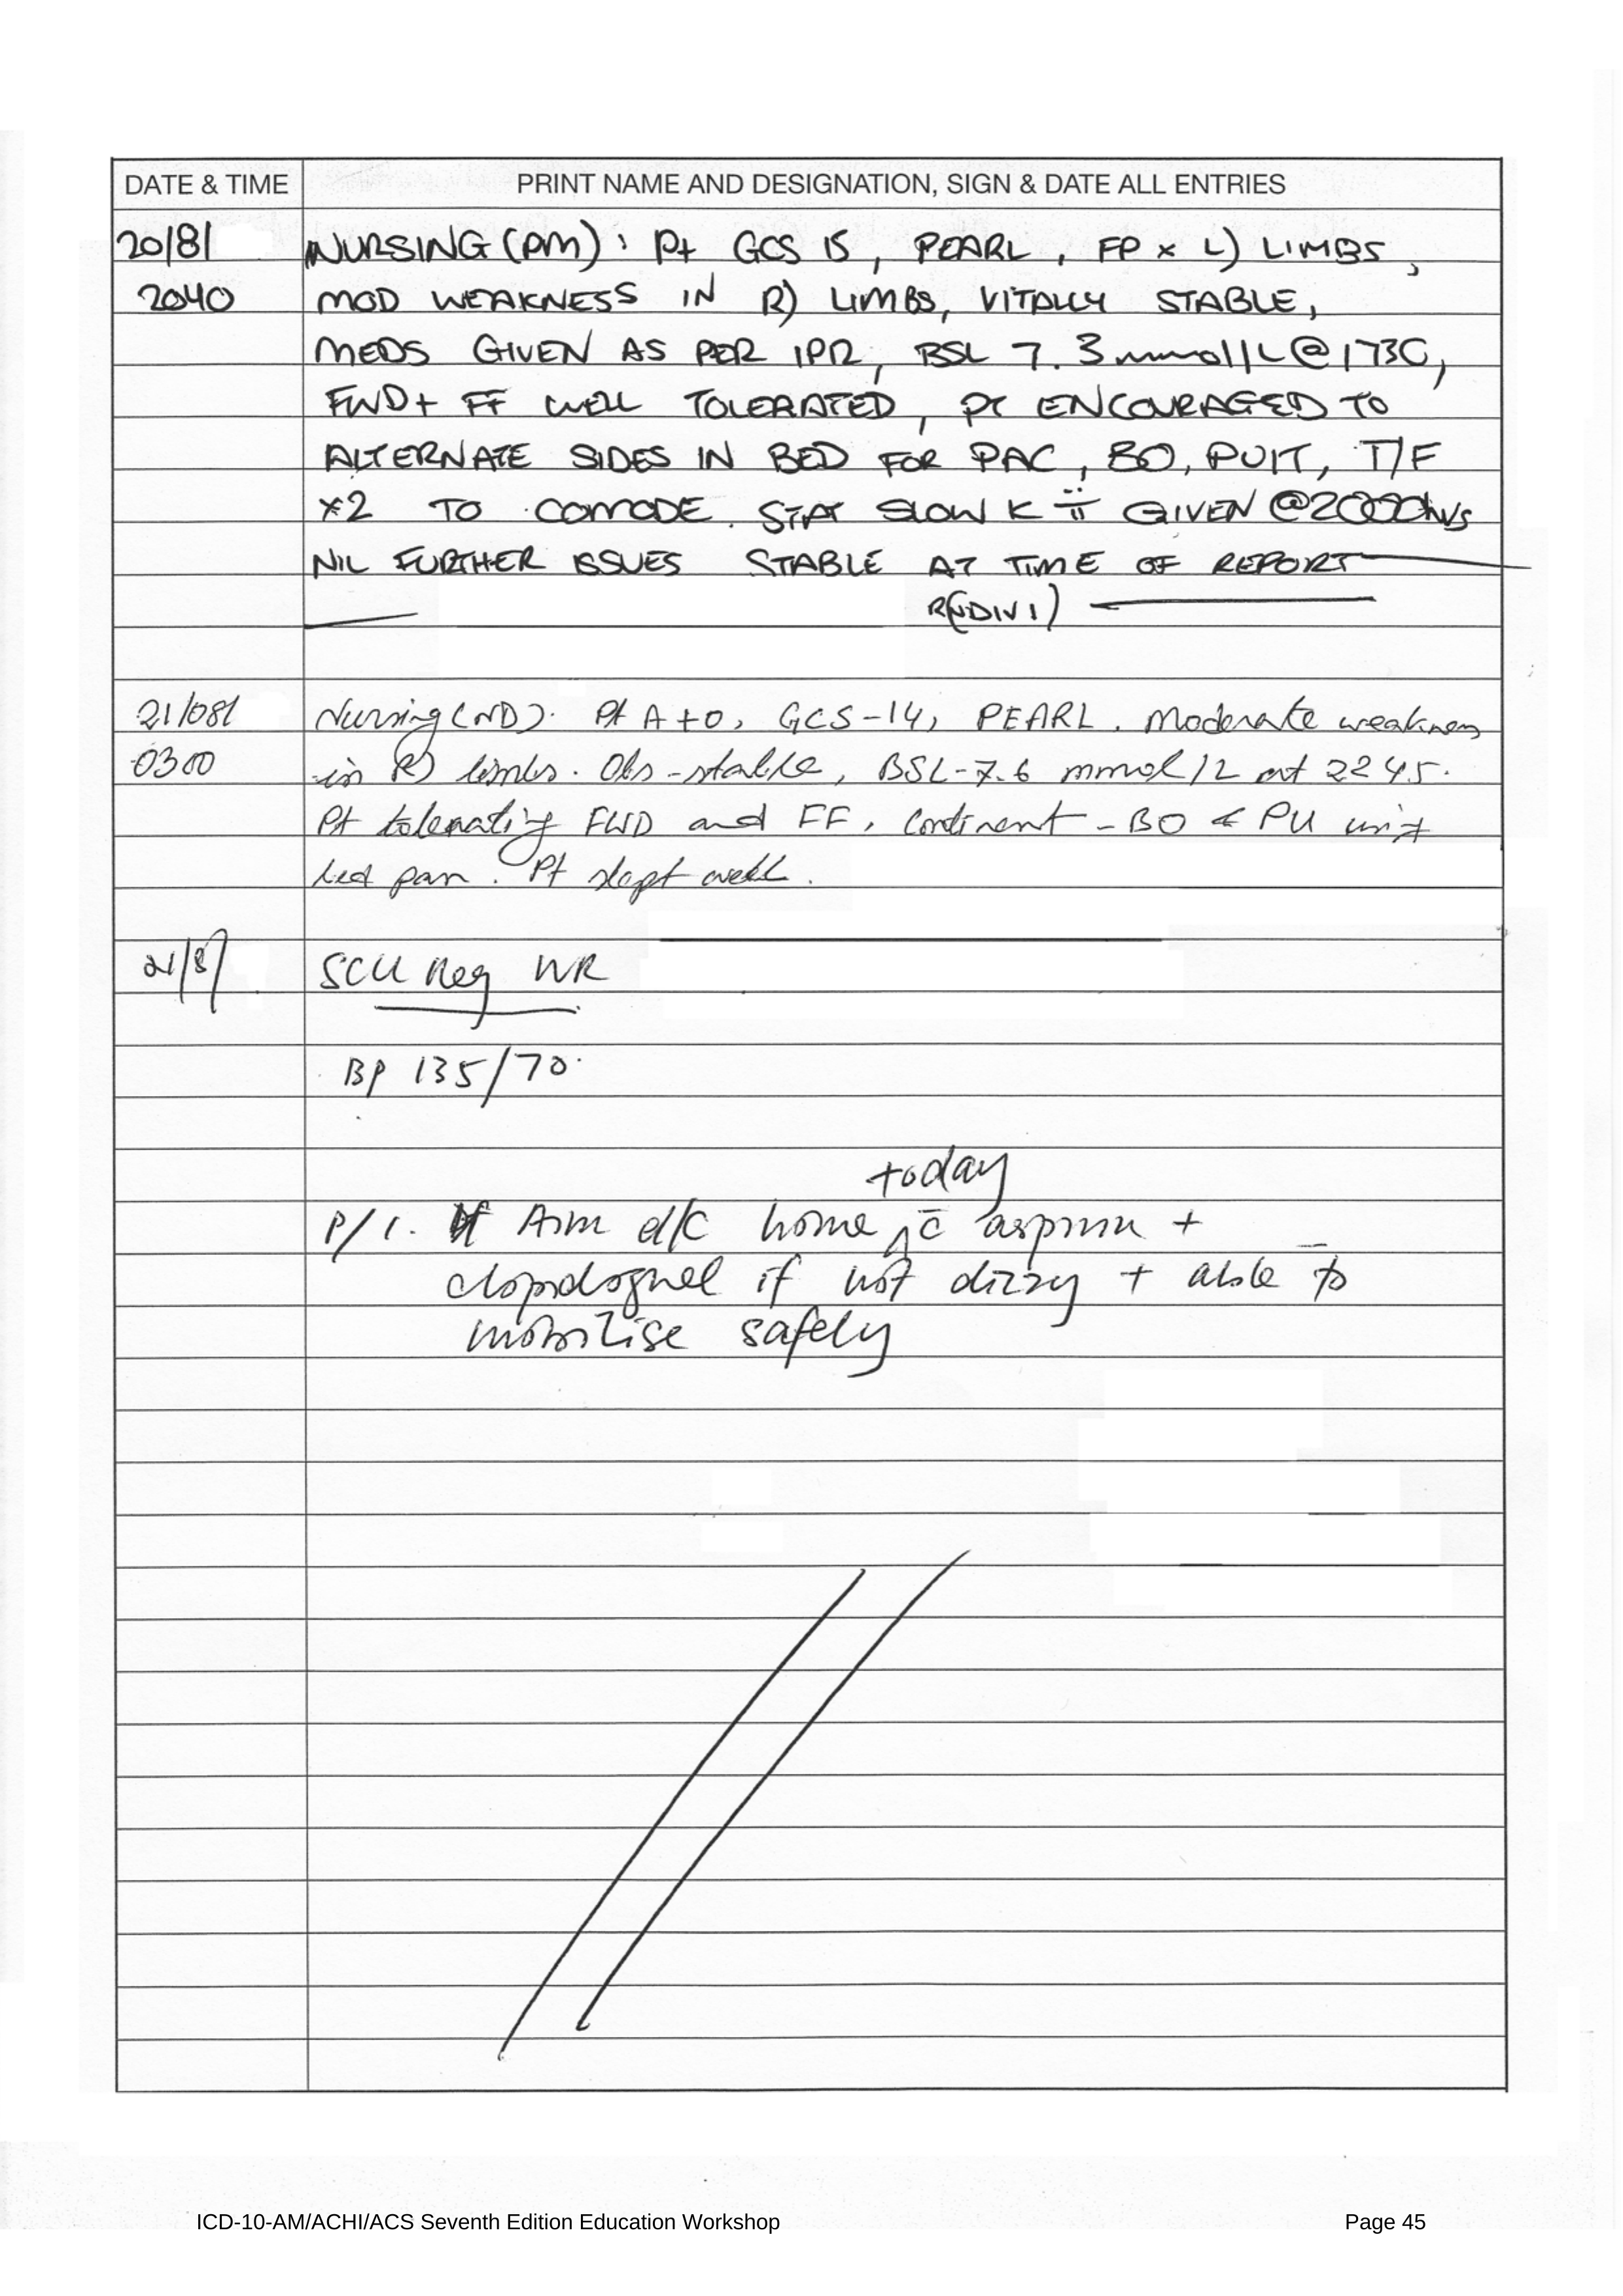 DATE & TIME PRINT NAME AND DESIGNATION, SIGN & DATE ALL ENTRIES
20/8/ NURSING (PM): Pt GCS 15, PEARL, FP x L) LIMBS,
2040 MOD WEAKNESS IN R) LIMBS, VITALLY STABLE,
MEDS GIVEN AS PER IPR, BSL 7.3mmol/L @ 1730,
FWD + FF WELL TOLERATED, PT ENCOURAGED TO
ALTERNATE SIDES IN BED FOR PAC, BO, PUIT, T/F
x2 TO COMODE. STAT SLOW K ii GIVEN @2000hrs
NIL FURTHER ISSUES STABLE AT TIME OF REPORT
R(NDIV1)
21/08/ Nursing (ND). Pt A+O, GCS-14, PEARL. Moderate weakness
0300 in R) limbs. Obs-stable, BSL-7.6 mmol/L at 2245.
Pt tolerating FWD and FF. Continent - BO & PU
bed pan. Pt slept well.
21/8/ SCU Reg WR
BP 135/70
today
P/ 1. Aim d/c home ^ c̄ aspirin +
clopidogrel if not dizzy + able to
mobilise safely
ICD-10-AM/ACHI/ACS Seventh Edition Education Workshop Page 45